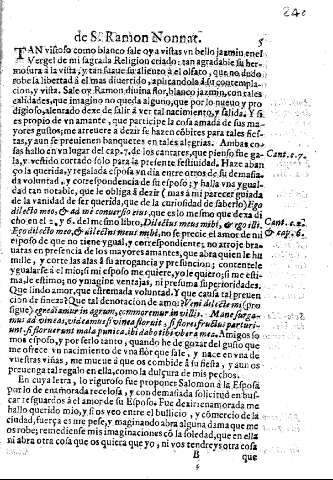 de S. Ramon Nonnat. 5
TAN vistoso como blanco sale oy a vistas vn bello jazmin en el
Vergel de mi sagrada Religion criado: tan agradable su her-
mosura a la vista; y tan suaue su aliento à el olfato, que no dudo
robe la libertad à el mas diuertido, aplicandola à su contempla-
cion, y vista. Sale oy Ramon diuina flor, blanco jazmin, con tales
calidades, que imagino no queda alguno, que por lo nueuo y pro
digioso, alentado dexe de salir à ver tal nacimiento, y salida. Y si es
propio de vn amante, que participe la cosa amada de sus ma-
yores gustos; me atreuere a dezir se hazen cõbites para tales fies-
tas, y aun se preuienen banquetes en tales alegrias. Ambas co-
sas hallo en vn lugar del cap. 7. de los cantares, que pienso fue ga-
la, y vestido cortado solo para la presente festiuidad. Haze aban
go la querida, y regalada esposa vn dia entre otros de su demasia
da voluntad, y correspondencia de su esposo; y halla vna ygual-
dad tan notable, que le obliga à dezir (mas à mi parecer guiada
de la vanidad de ser querida, que de la curiosidad de saberlo) Ego
dilecto meo, & ad me conuersio eius, que es lo mesmo que dexa di
cho en el 2. y 6. del mesmo libro, Dilectus meus mihi, & ego illi.
Ego dilecto meo, & dilectus meus mihi, no se precie el amor de mi
esposo de que no tiene ygual, y correspondiente; no arroje bra-
uatas en presencia de los mayores amantes, que abra quien le hu
mille, y corte las alas à su arrogancia y presuncion; contentese
ygualarse à el mio; si mi esposo me quiere, yo le quiero; si me esti-
ma, le estimo, no ymagine ventajas, ni presuma superioridades.
Que lindo amor, que estremada voluntad. Y que causa tal preuen
cion de fineza? Que tal denotacion de amor? Veni dilecte mi (pro
sigue) egrediamur in agrum, commoremur in villis. Mane surga-
mus ad vineas, videamus si vinea floruit, si flores fructus parturi-
unt, si floruerunt mala punica, ibi dabo tibi vbera mea. Amigo
mos esposo, y por serlo tanto, quando he de gozar del gusto que
me ofrece vn nacimiento de vna flor que sale, y nace en vna de
vuestras viñas, me mueue à que os combide à su fiesta, y aun os
preuenga tal regalo en ella, como la dulçura de mis pechos.
En cuya letra, lo riguroso fue proponer Salomon à la Esposa
por lo de enamorada recelosa, y con demasiada solicitud en bus-
car resguardos à el amor de su Esposo. Fue dezir: enamorada me
hallo querido mio, y si os veo entre el bullicio, y cõmercio de la
ciudad, fuerça es me pese, y maginando abra alguna dama que me
os robe; remediense mis imaginaciones cõ la soledad, que en ella
ni abra otra cosa que os quiera que yo, ni vos tendreys otra cosa
B
que
Cant. c. 7.
Cant. c. 2.
& cap. 6.